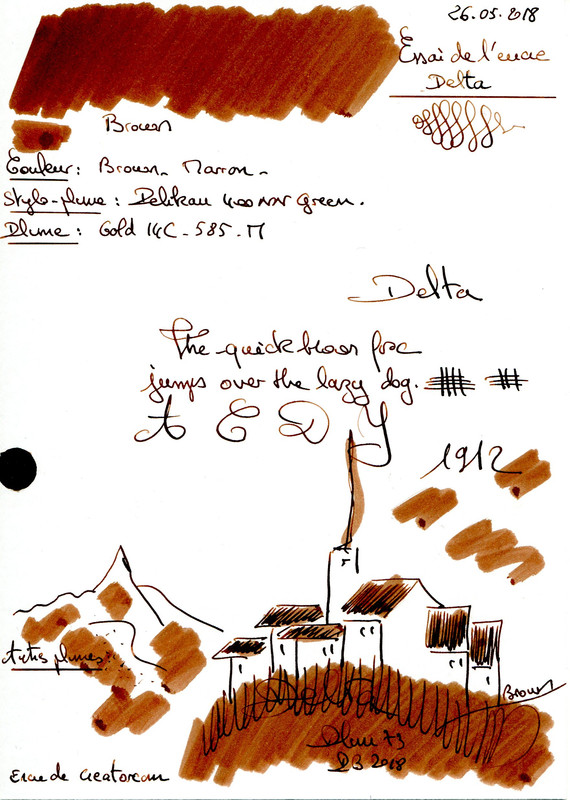 26.05.2018
Essai de l'encre
Delta
Brown
Couleur: Brown - Marron -
Stylo-plume: Pelikan 400 NN Green.
Plume: Gold 14C - 585 - M
Delta
The quick brown fox
jumps over the lazy dog.
A C D Y
1912
Autres plumes:
Delta
Brown
73
2018
Encre de